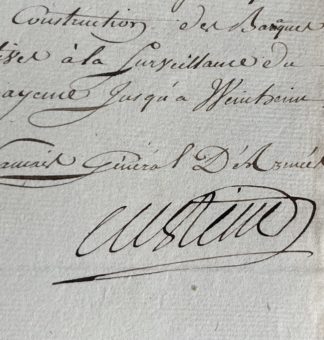 Construction des Barques
à la Surveillance du
Jusqu'à Weinheim
Général D'Armée
custine